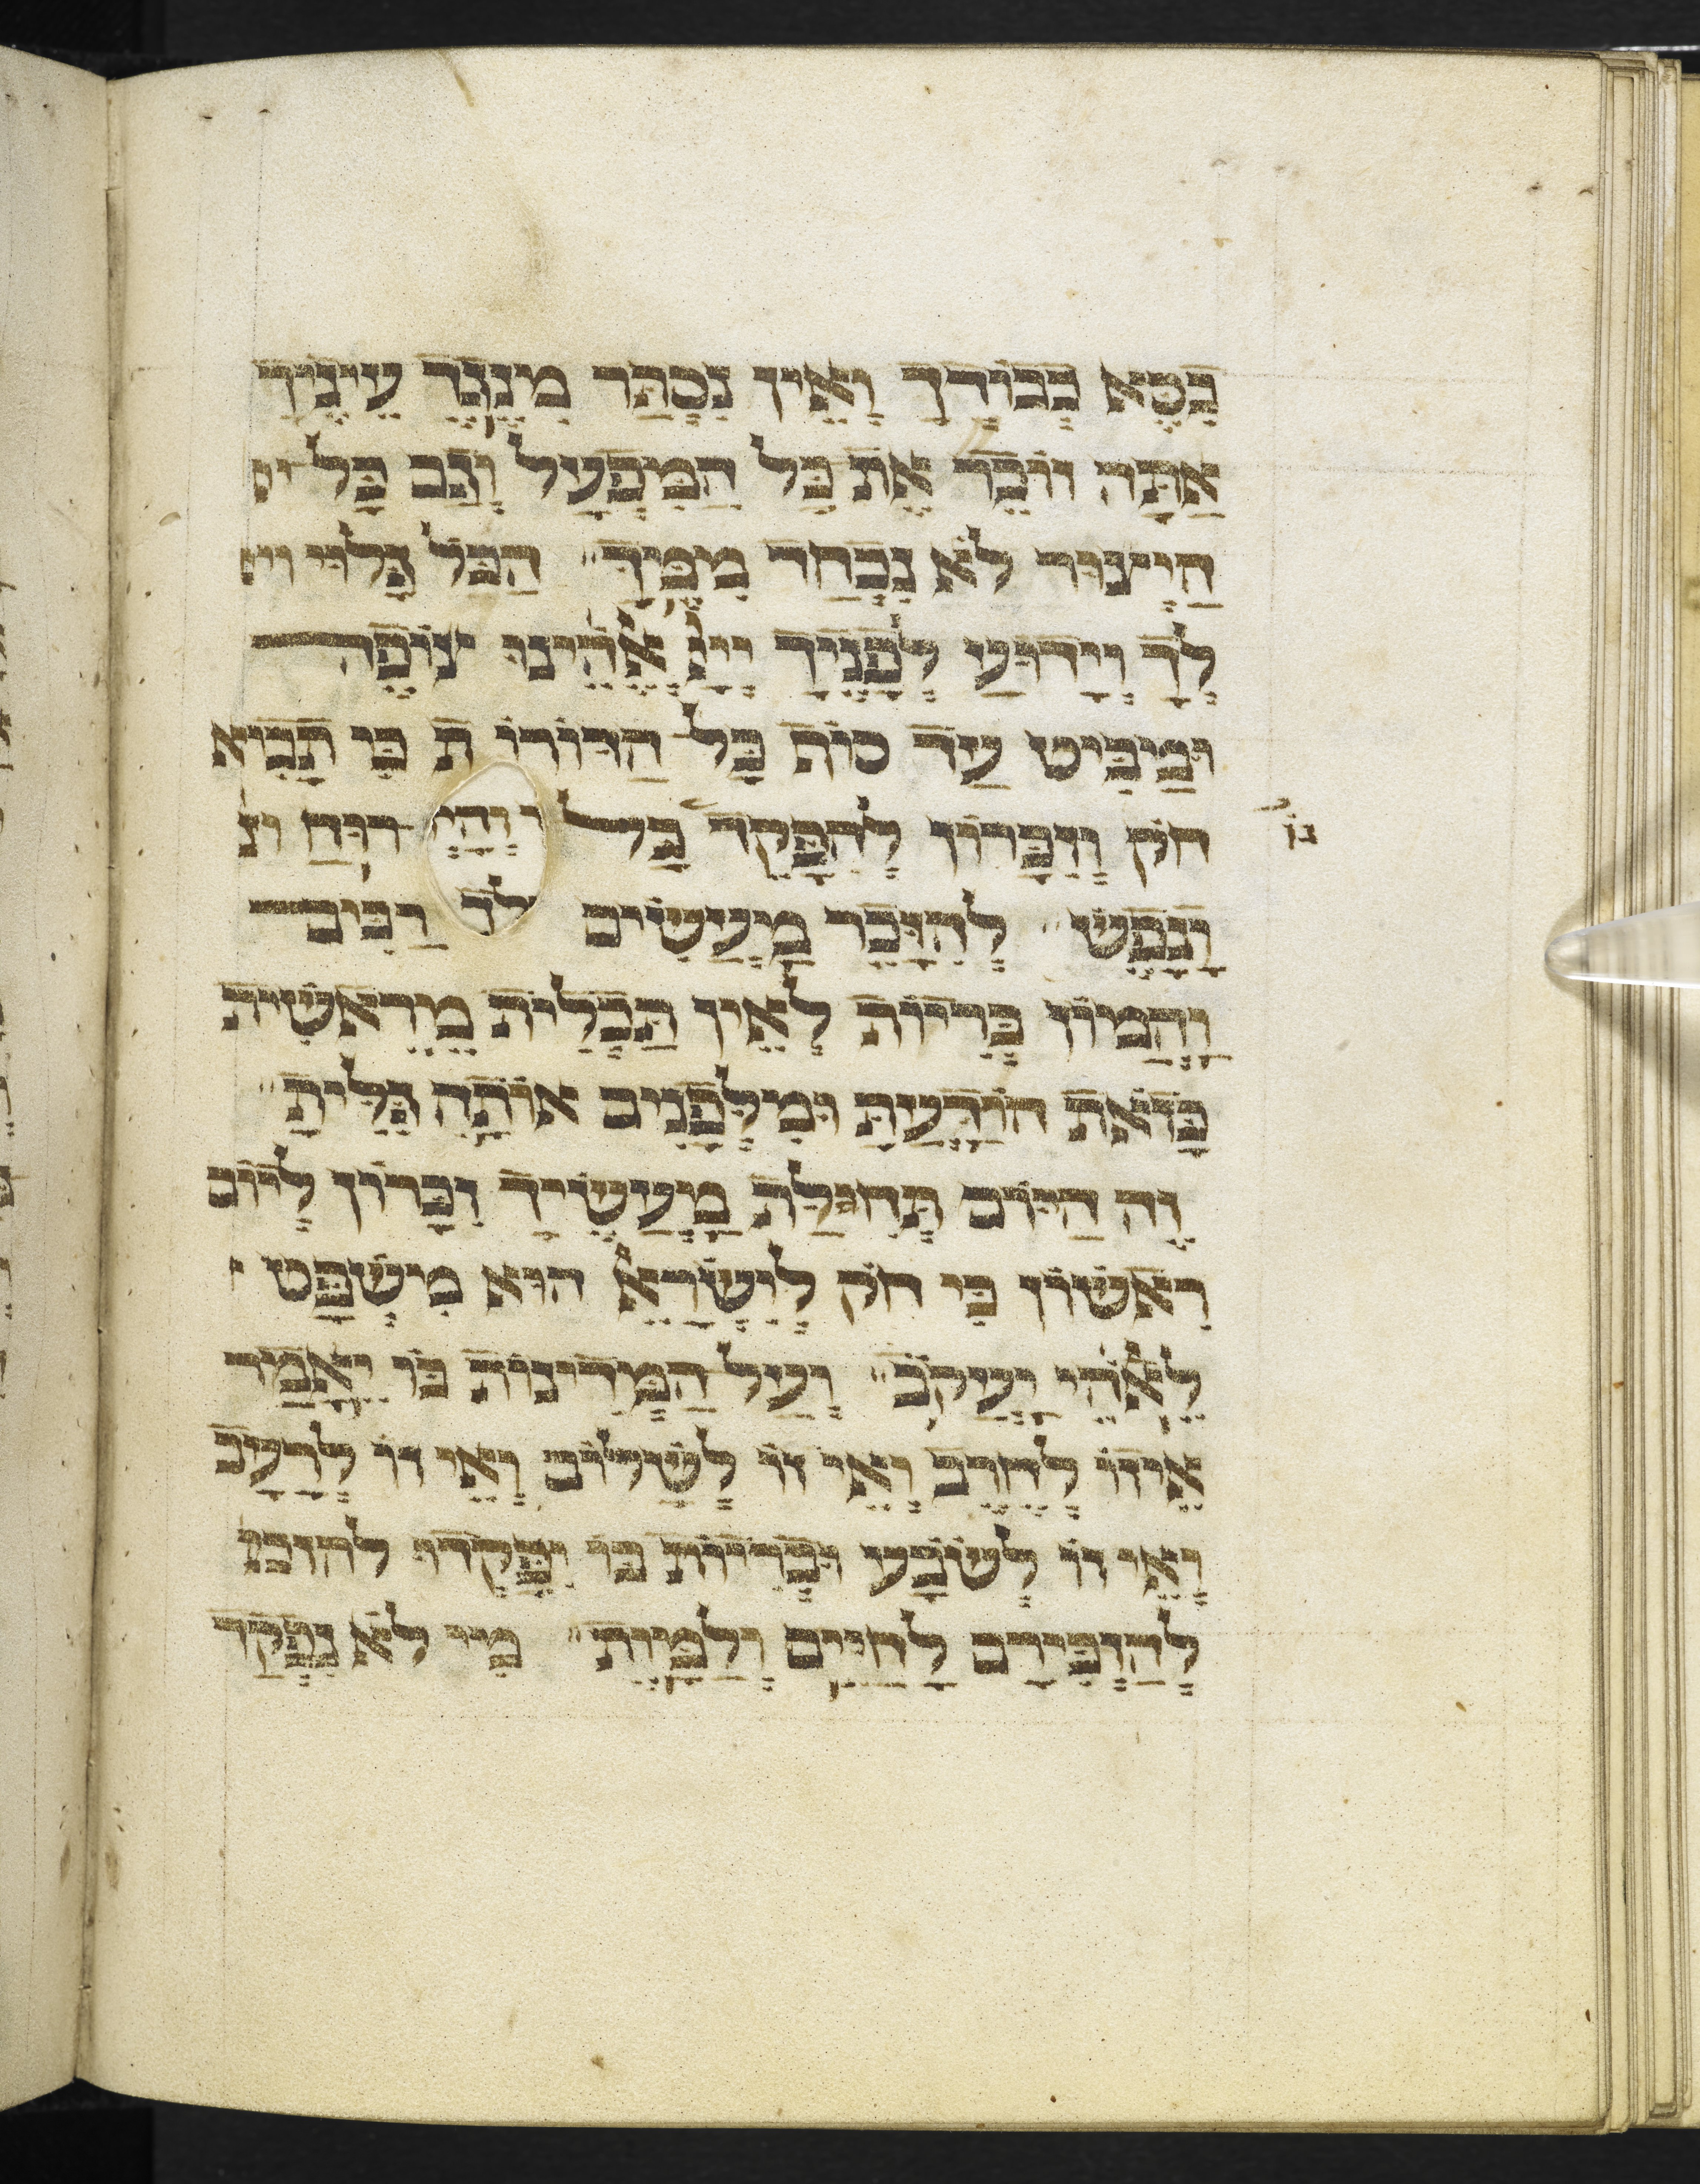 כסא כבודך ואין נסתר מנגד עיניך
אתה זוכר את כל המפעל וגם כל
היצור לא נכחד ממך׃ הכל גלוי
לך וידוע לפניך ייי אלהינו צופה
ומביט עד סוף כל הדורות כי תביא
חוק זכרון להפקד כל רוח
ונפש׃ להזכר מעשים רבים
והמון בריות לאין תכלית מראשית
כזאת הודעת ומלפנים אותה גלית׃
זה היום תחלת מעשיך זכרון ליום
ראשון כי חוק לישראל הוא משפט
לאלהי יעקב׃ ועל המדינות בו יאמר
איזו לחרב ואיזו לשלום ואיזו לרעב
ואיזו לשובע ובריות בו יפקדו להזכי
להזכירם לחיים ולמות׃ מי לא נפקד